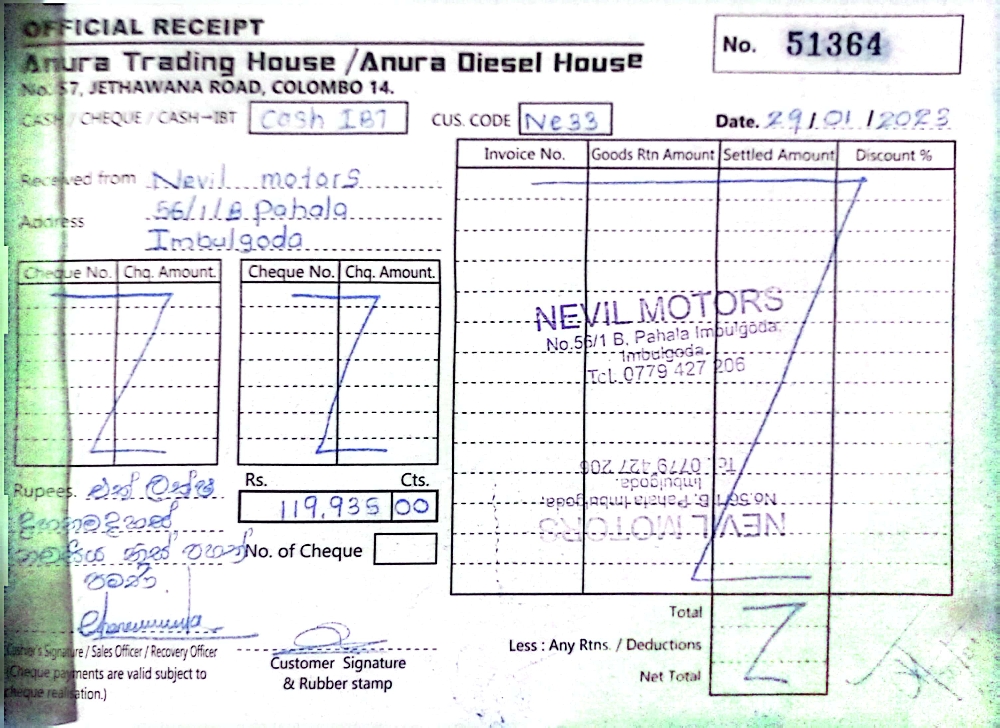 OFFICIAL RECEIPT
Anura Trading House / Anura Diesel House
No. 57, JETHAWANA ROAD, COLOMBO 14.
No. 51364
CASH / CHEQUE / CASH-IBT Cash IBT
CUS. CODE Ne33
Date. 29/01/2023
Received from Nevil motors
Address 56/1/B Pahala
Imbulgoda
Invoice No. Goods Rtn Amount Settled Amount Discount %
Cheque No. Chq. Amount. Cheque No. Chq. Amount.
NEVIL MOTORS
No.56/1 B, Pahala Imbulgoda,
Imbulgoda.
Tel. 0779 427 206
Tel. 0779 427 206
Imbulgoda
No.56/1 B, Pahala Imbulgoda,
NEVIL MOTORS
Rupees. එක් ලක්ෂ
දහනමදහස්
නවසිය තිස් පහක්
පමණි.
Rs. Cts.
119,935 00
No. of Cheque
Total
Less : Any Rtns. / Deductions
Net Total
Cashier's Signature / Sales Officer / Recovery Officer
(Cheque payments are valid subject to
cheque realisation.)
Customer Signature
& Rubber stamp